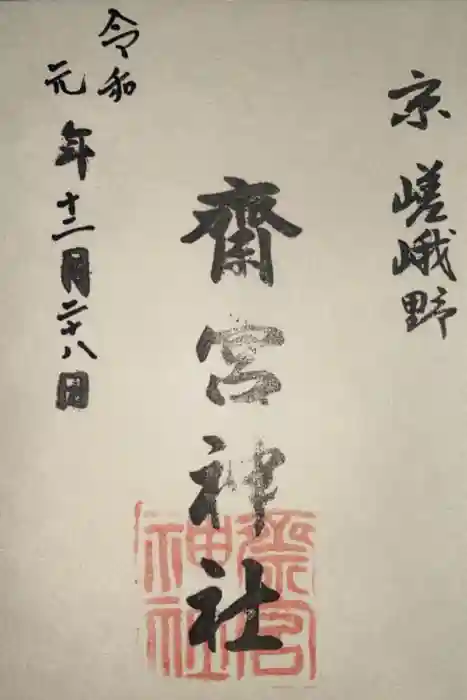 京 嵯峨野
齋宮神社
齋宮神社
令和
元年十二月二十八日